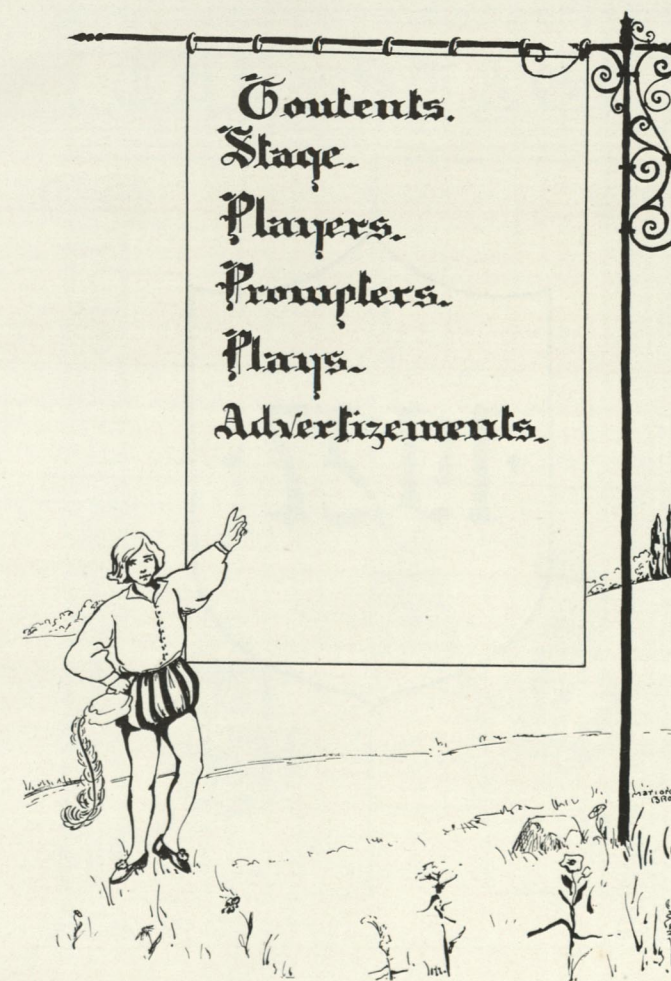 Contents.
Stage.
Players.
Prompters.
Plays.
Advertizements.